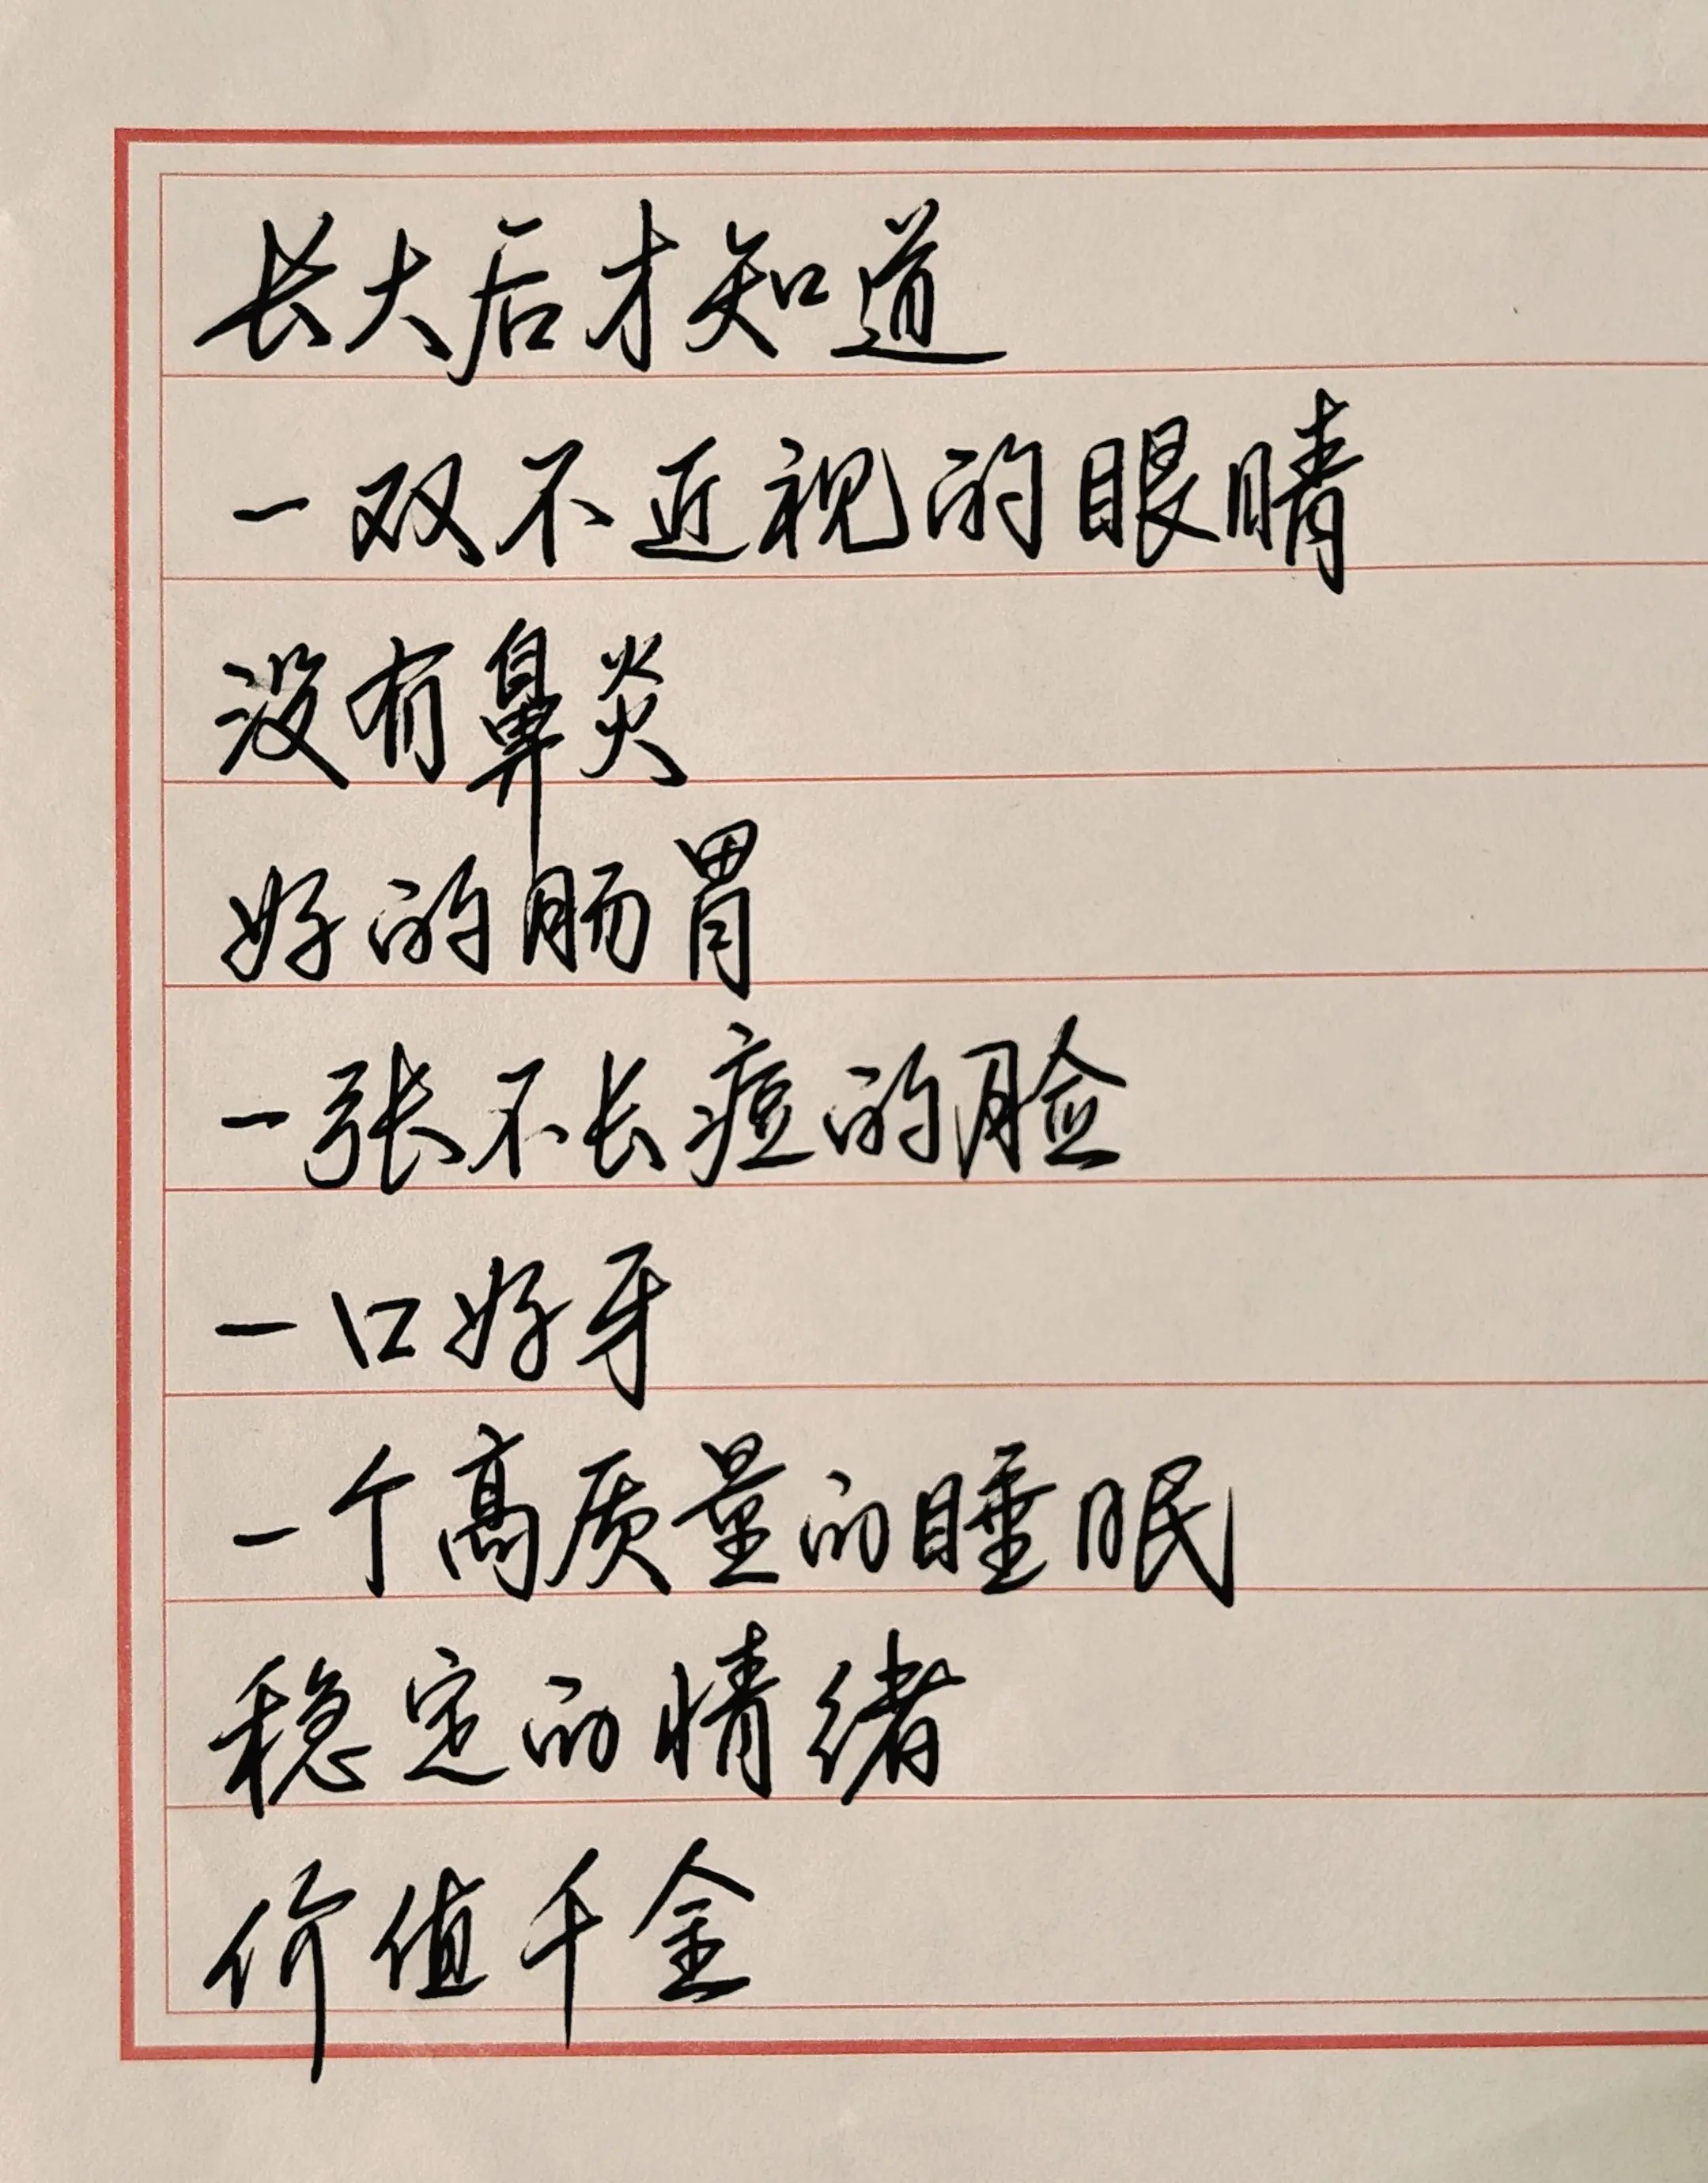 长大后才知道
一双不近视的眼睛
没有鼻炎
好的肠胃
一张不长痘的脸
一口好牙
一个高质量的睡眠
稳定的情绪
价值千金